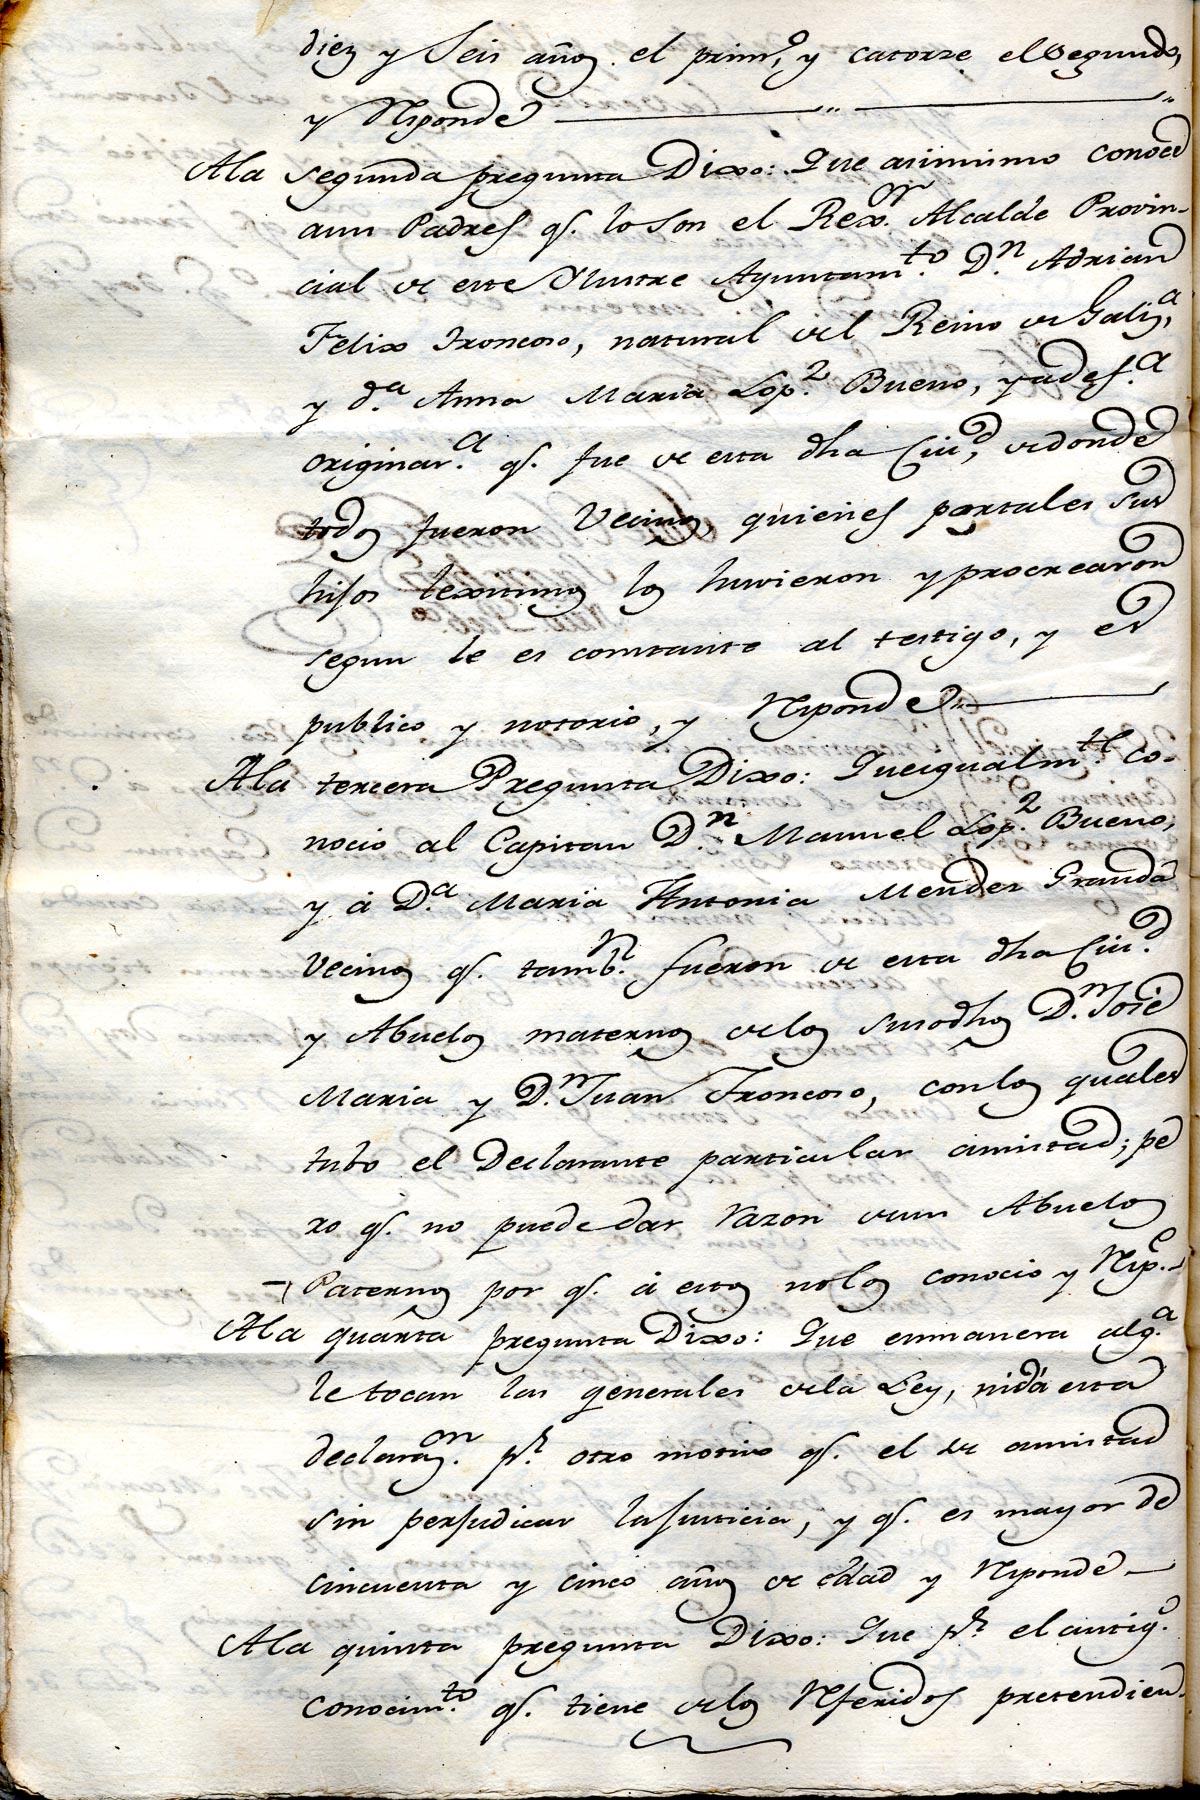 diez y Seis años el prim.o, y catorze el Segundo,
y Responde
A la segunda pregunta Dixo: Que asimismo conoce
a sus Padres q.e lo son el Rex.or Alcalde Provin-
cial de este Ylustre Ayuntam.to D.n Adrian
Felix Troncoso, natural del Reino de Galiz.a,
y d.a Anna Maria Lop.z Bueno, ya def.ta
originar.a q.e fue de esta dha Ciu.d, de donde
todos fueron Vecinos, quienes por tales sus
hijos lexitimos los huvieron y procrearon
segun le es constante al testigo, y es
publico y notorio, y Responde
A la tercera Pregunta Dixo: Que igualm.te co-
nocio al Capitan D.n Manuel Lop.z Bueno,
y á D.a Maria Antonia Mendez Granda
Vecinos q.e tamb.n fueron de esta dha Ciu.d
y Abuelos maternos de los susodhos D.n José
Maria y D.n Juan Troncoso, con los quales
tubo el Declarante particular amistad; pe
ro q.e no puede dar razon de sus Abuelos
Paternos por q.e á estos no los conocio y Resp.e
A la quarta pregunta Dixo: Que en manera alg.a
le tocan las generales de la Ley, ni dá esta
declaraz.on p.r otro motivo q.e el de amistad
sin perjudicar la Justicia, y q.e es mayor de
cincuenta y cinco años de edad y Responde
A la quinta pregunta Dixo: Que p.r el antig.o
conocim.to q.e tiene de los Referidos pretendien-